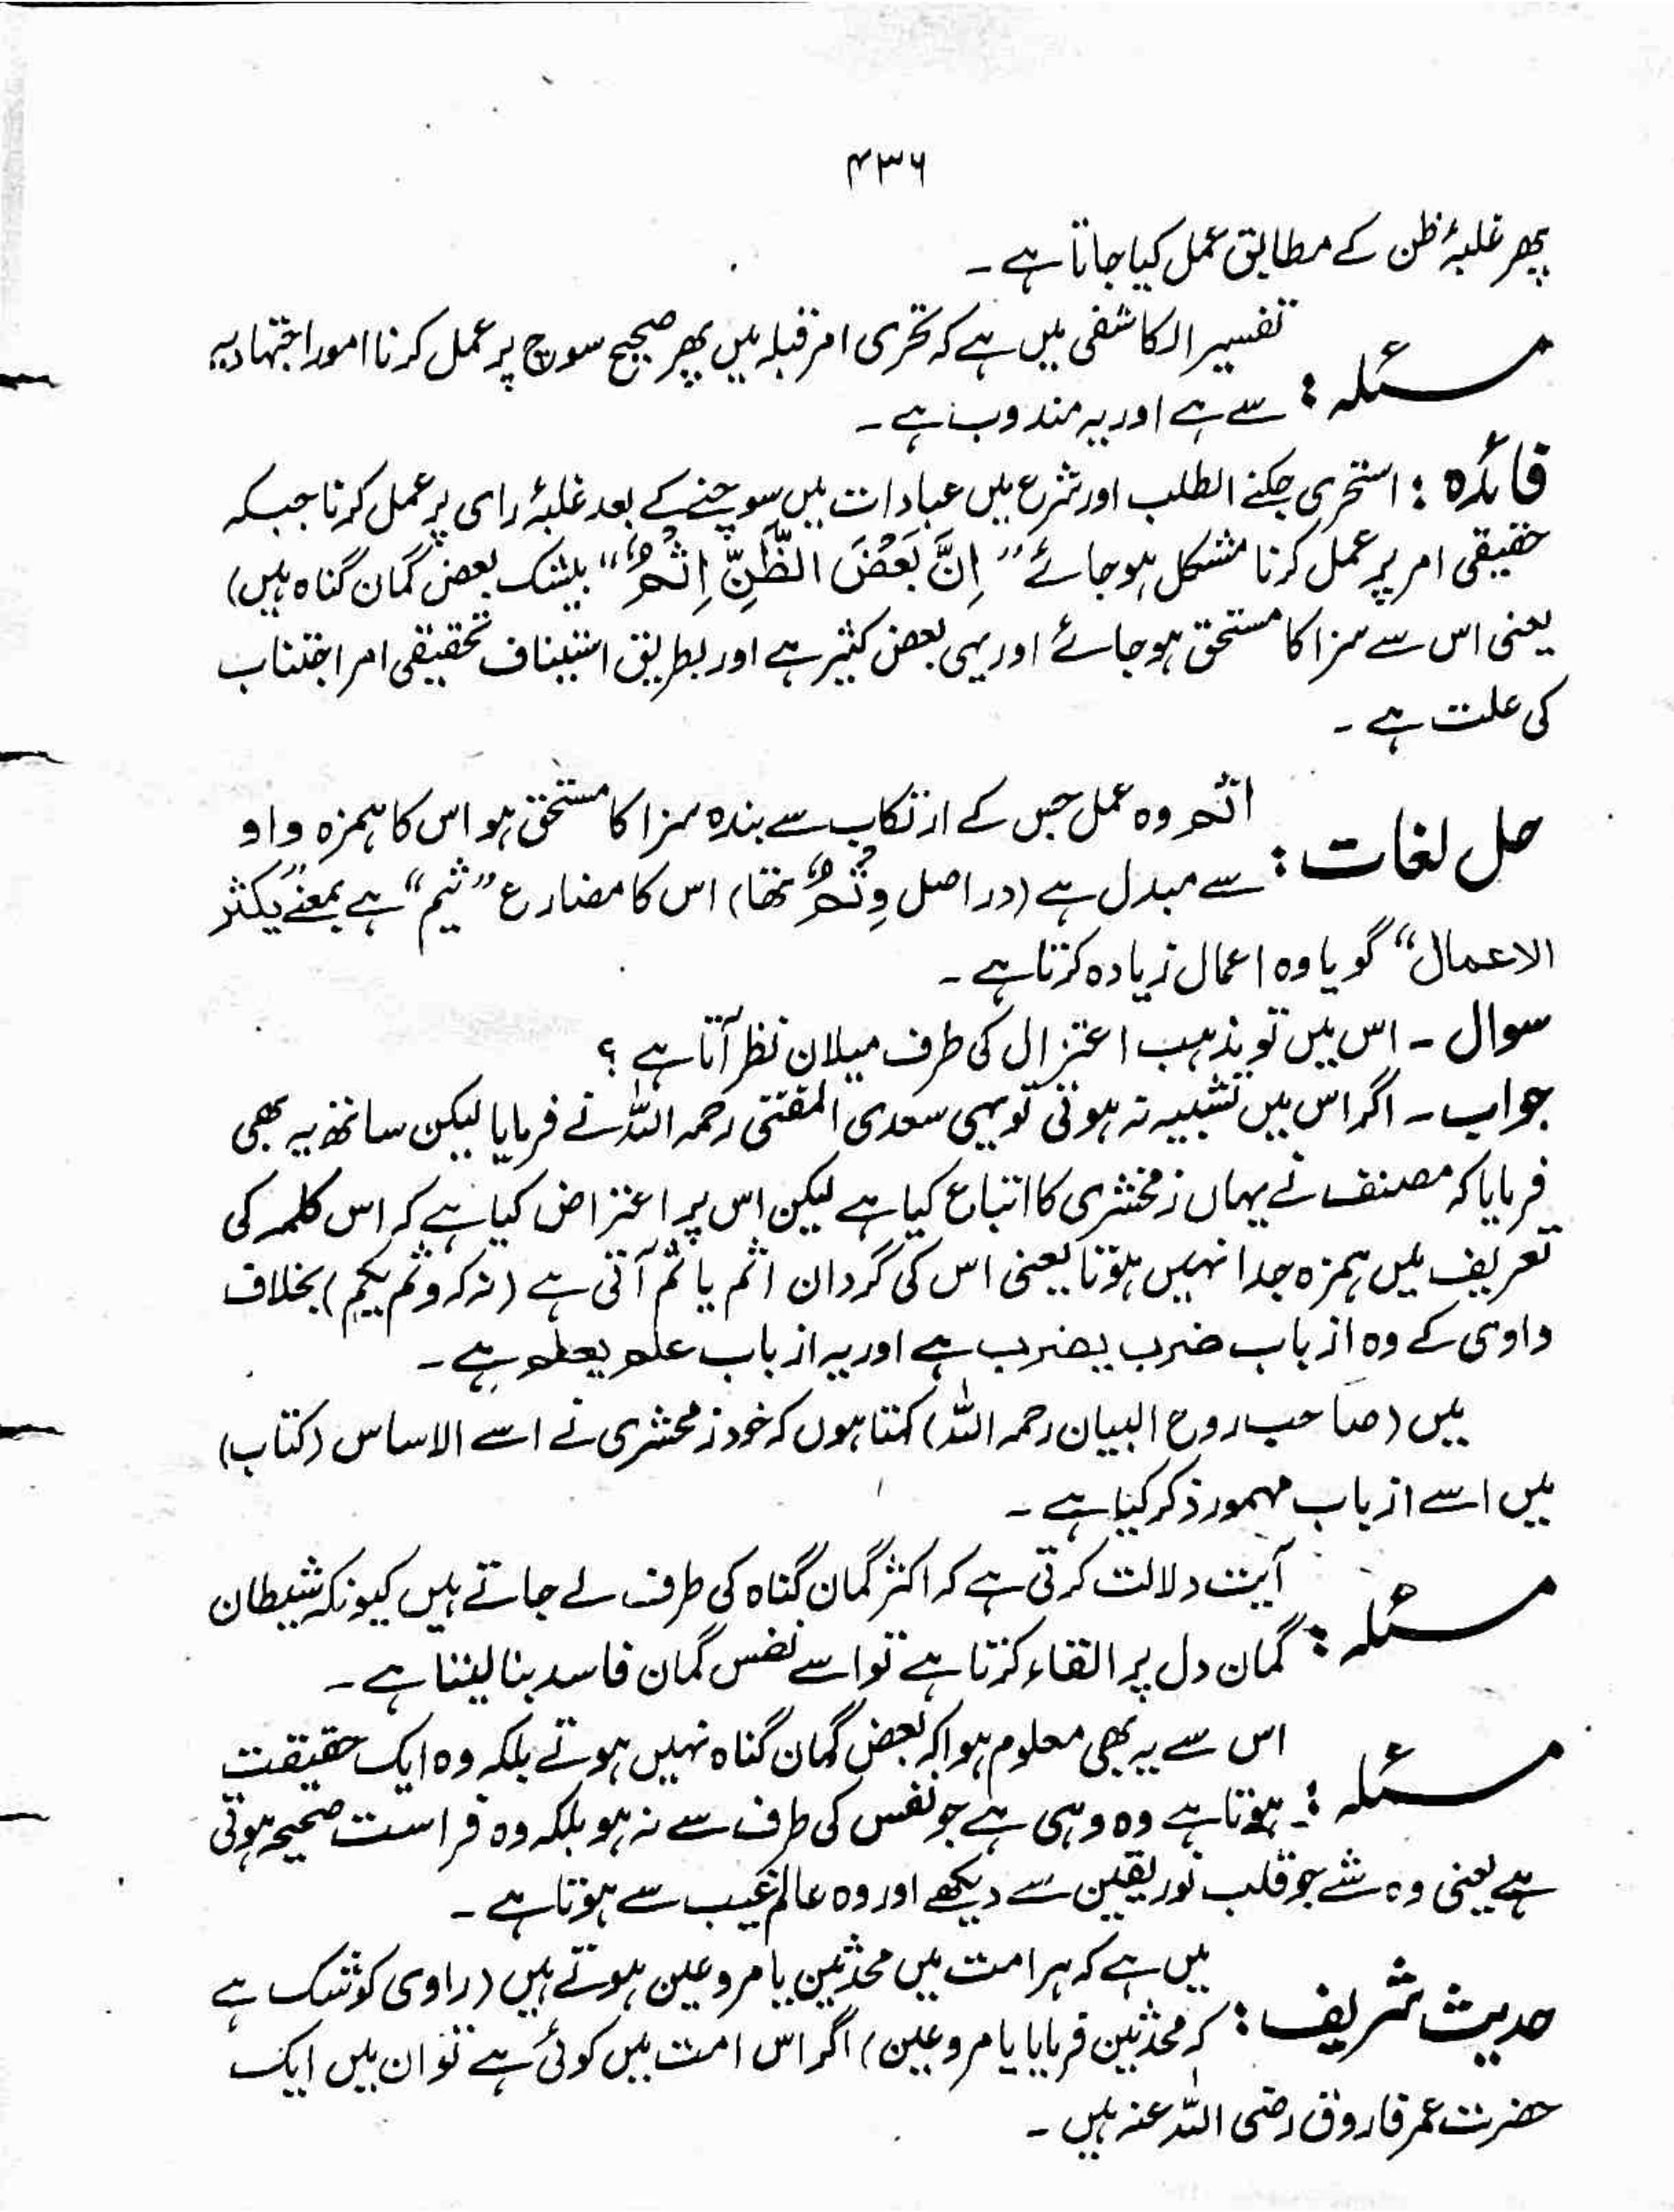 ۴۳۶
پھر غلبۂ ظن کے مطابق عمل کیا جاتا ہے ۔
مسئلہ : تفسیر الکاشفی میں ہے کہ تحری امر قبلہ میں پھر صحیح سوچ پر عمل کرنا امور اجتہادیہ
سے ہے اور یہ مندوب ہے ۔
فائدہ : استحری بمعنے الطلب اور شرع میں عبادات میں سوچنے کے بعد غلبۂ رای پر عمل کرنا جبکہ
حقیقی امر پر عمل کرنا مشکل ہو جائے ”اِنَّ بَعْضَ الظَّنِّ اِثْمٌ“ بیشک بعض گمان گناہ ہیں)
یعنی اس سے سزا کا مستحق ہو جائے اور یہی بعض کثیر ہے اور بطریق استیناف تحقیقی امر اجتناب
کی علت ہے ۔
حل لغات : اثم وہ عمل جس کے ارتکاب سے بندہ سزا کا مستحق ہو اس کا ہمزہ واو
سے مبدل ہے (دراصل وِثْمٌ تھا) اس کا مضارع ”ثیم“ ہے بمعنے ”یکثر
الاعمال“ گویا وہ اعمال زیادہ کرتا ہے ۔
سوال ۔ اس میں تو مذہب اعتزال کی طرف میلان نظر آتا ہے ؟
جواب ۔ اگر اس میں تشبیہ نہ ہوتی تو یہی سعدی المفتی رحمہ اللہ نے فرمایا لیکن ساتھ یہ بھی
فرمایا کہ مصنف نے یہاں زمخشری کا اتباع کیا ہے لیکن اس پر اعتراض کیا ہے کہ اس کلمہ کی
تعریف میں ہمزہ جدا نہیں ہوتا یعنی اس کی گردان اثم یاثم آتی ہے (نہ کہ وثم یکیم) بخلاف
واوی کے وہ از باب ضرب یضرب ہے اور یہ از باب علم یعلم ہے ۔
میں (صاحب روح البیان رحمہ اللہ) کہتا ہوں کہ خود زمحشری نے اسے الاساس (کتاب)
میں اسے از باب مہمور ذکر کیا ہے ۔
مسئلہ : آیت دلالت کرتی ہے کہ اکثر گمان گناہ کی طرف لے جاتے ہیں کیونکہ شیطان
گمان دل پر القاء کرتا ہے تو اسے نفس گمان فاسد بنا لیتا ہے ۔
مسئلہ : اس سے یہ بھی معلوم ہوا کہ بعض گمان گناہ نہیں ہوتے بلکہ وہ ایک حقیقت
ہوتا ہے وہ وہی ہے جو نفس کی طرف سے نہ ہو بلکہ وہ فراست صحیحہ ہوتی
ہے یعنی وہ شے جو قلب نور یقین سے دیکھے اور وہ عالم غیب سے ہوتا ہے ۔
حدیث شریف : میں ہے کہ ہر امت میں محدثین یا مروعین ہوتے ہیں (راوی کو شک ہے
کہ محدثین فرمایا یا مروعین) اگر اس امت میں کوئی ہے تو ان میں ایک
حضرت عمر فاروق رضی اللہ عنہ ہیں ۔